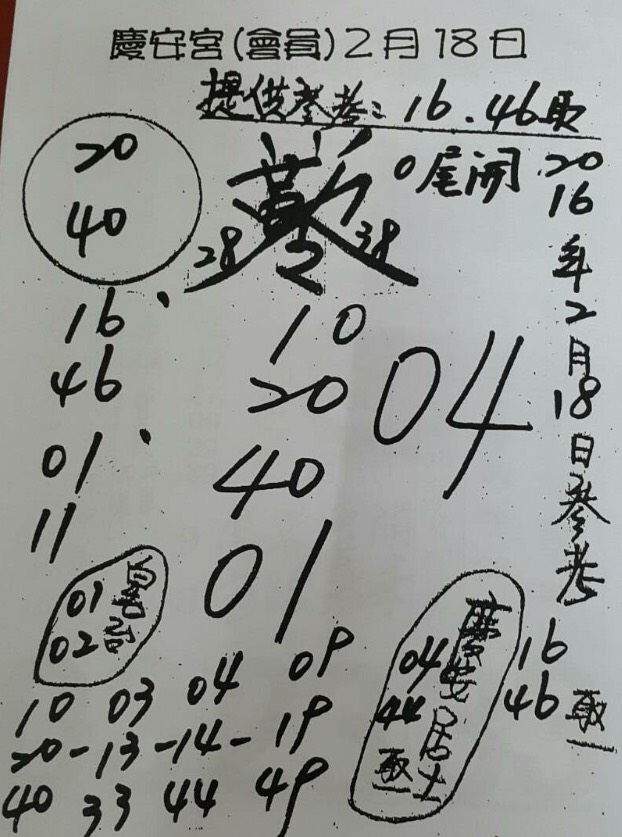 慶安宮(會員)2月18日
提供參考：16.46取
20
40
0尾開
28 38
16
46
01
11
10
20
40
01
04
2016年2月18日參考
16
46 取一
01
02
慶安居士
04
44
取一
10 03 04 09
20-13-14-19
40 33 44 49